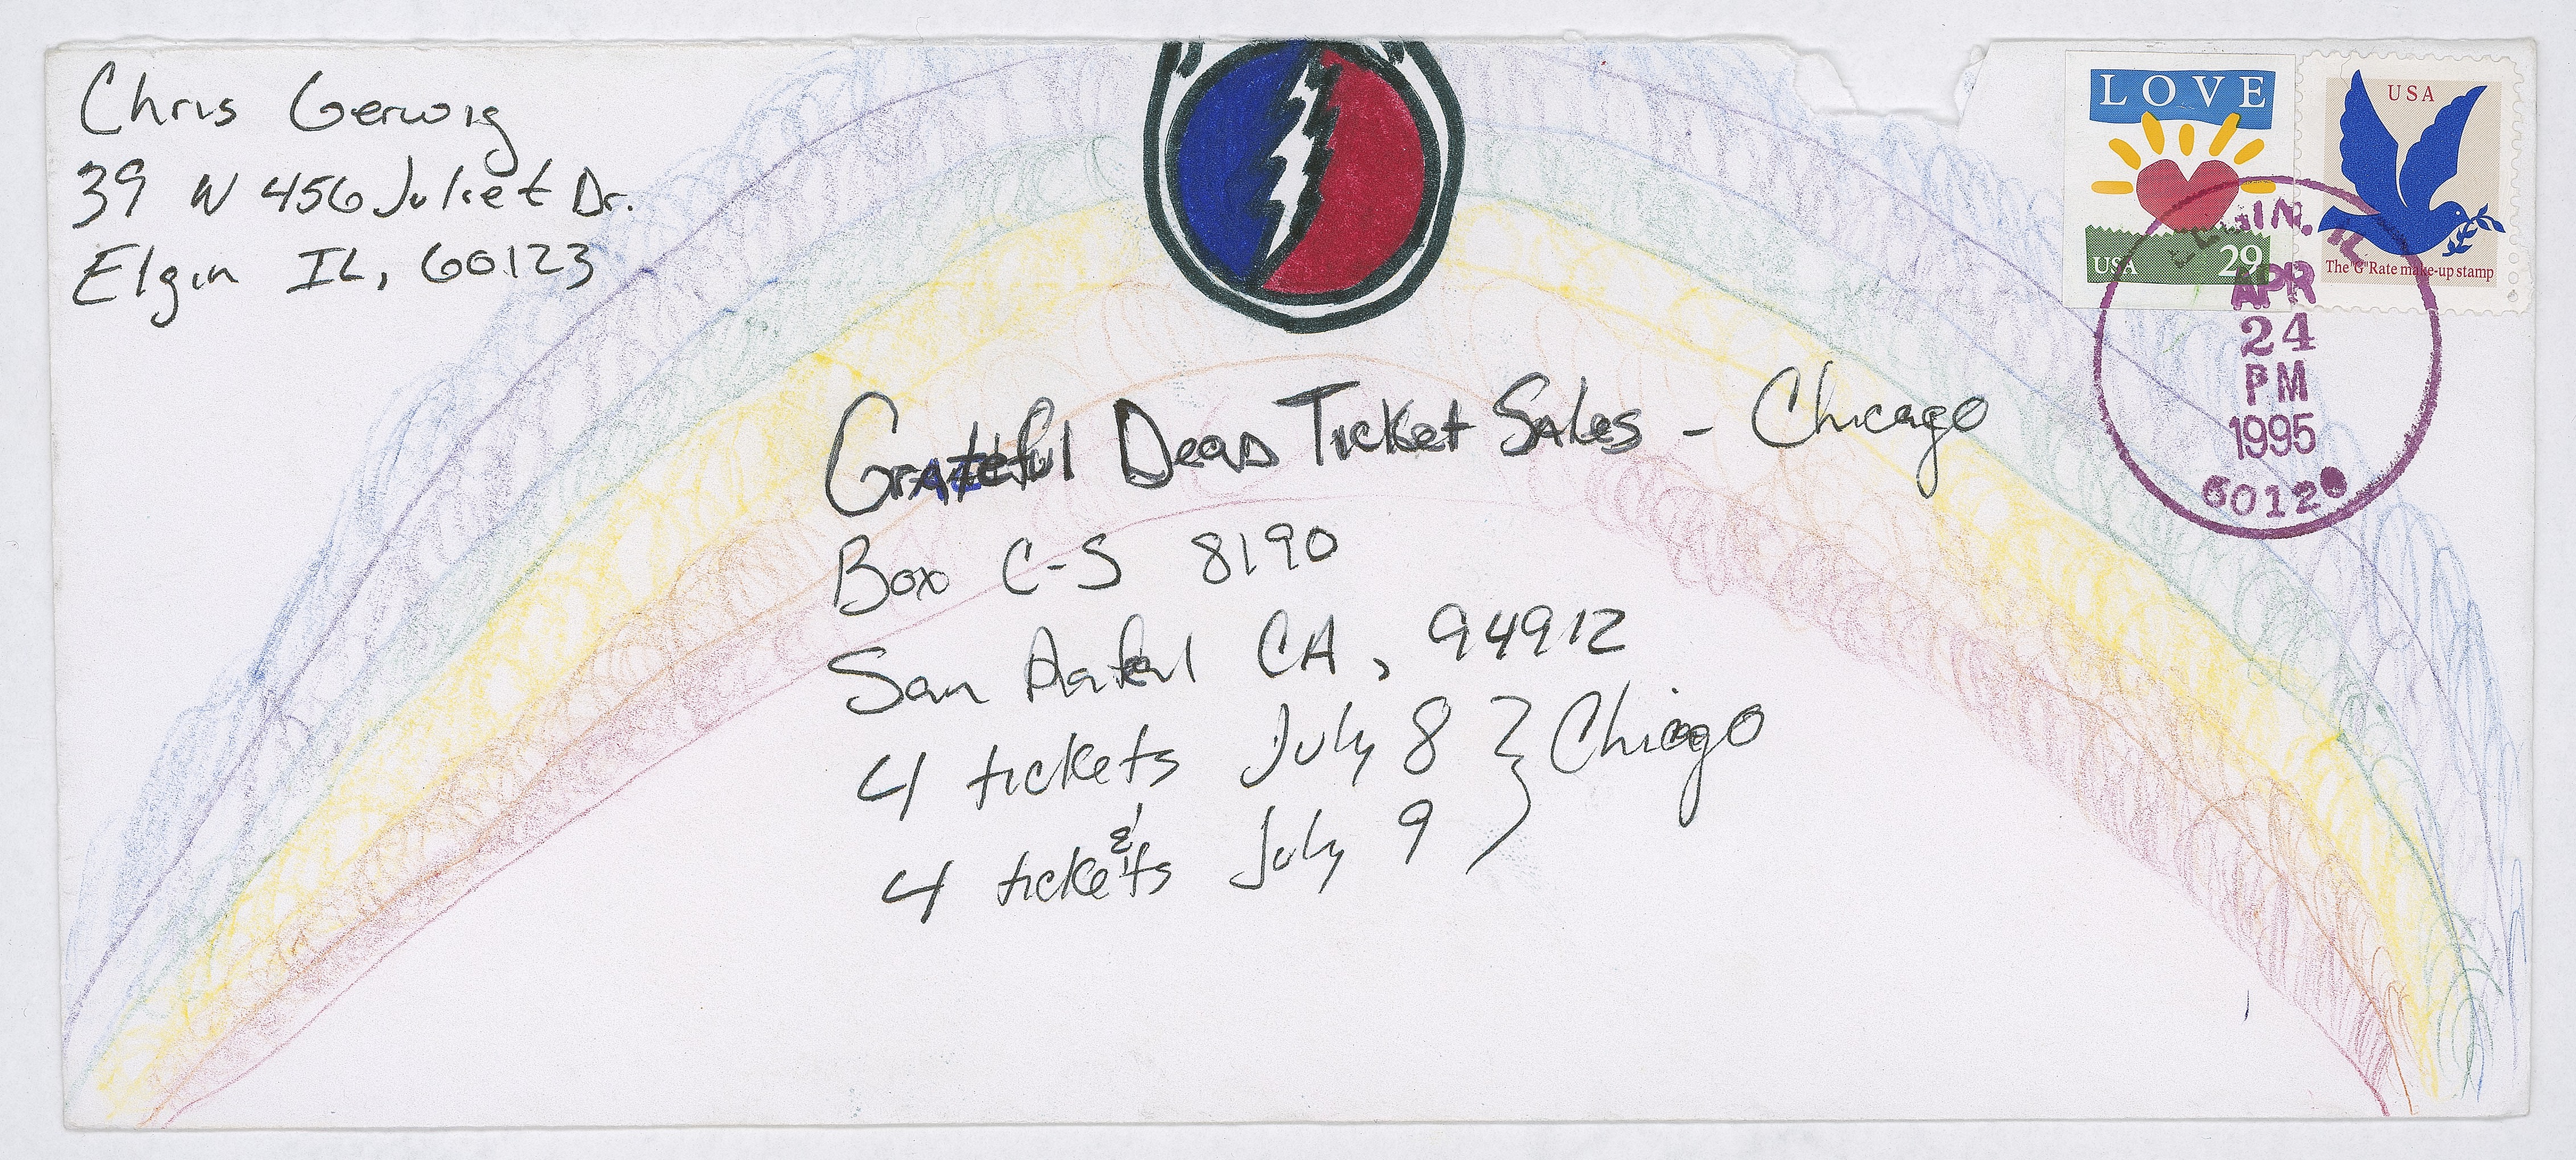 Chris Gerwig
39 W 456 Juliet Dr.
Elgin IL, 60123
LOVE
USA 29
USA
The "G" Rate make-up stamp
ELGIN, IL
APR
24
PM
1995
6012
Grateful Dead Ticket Sales - Chicago
Box C-S 8190
San Rafael CA, 94912
4 tickets July 8 } Chicago
&
4 tickets July 9